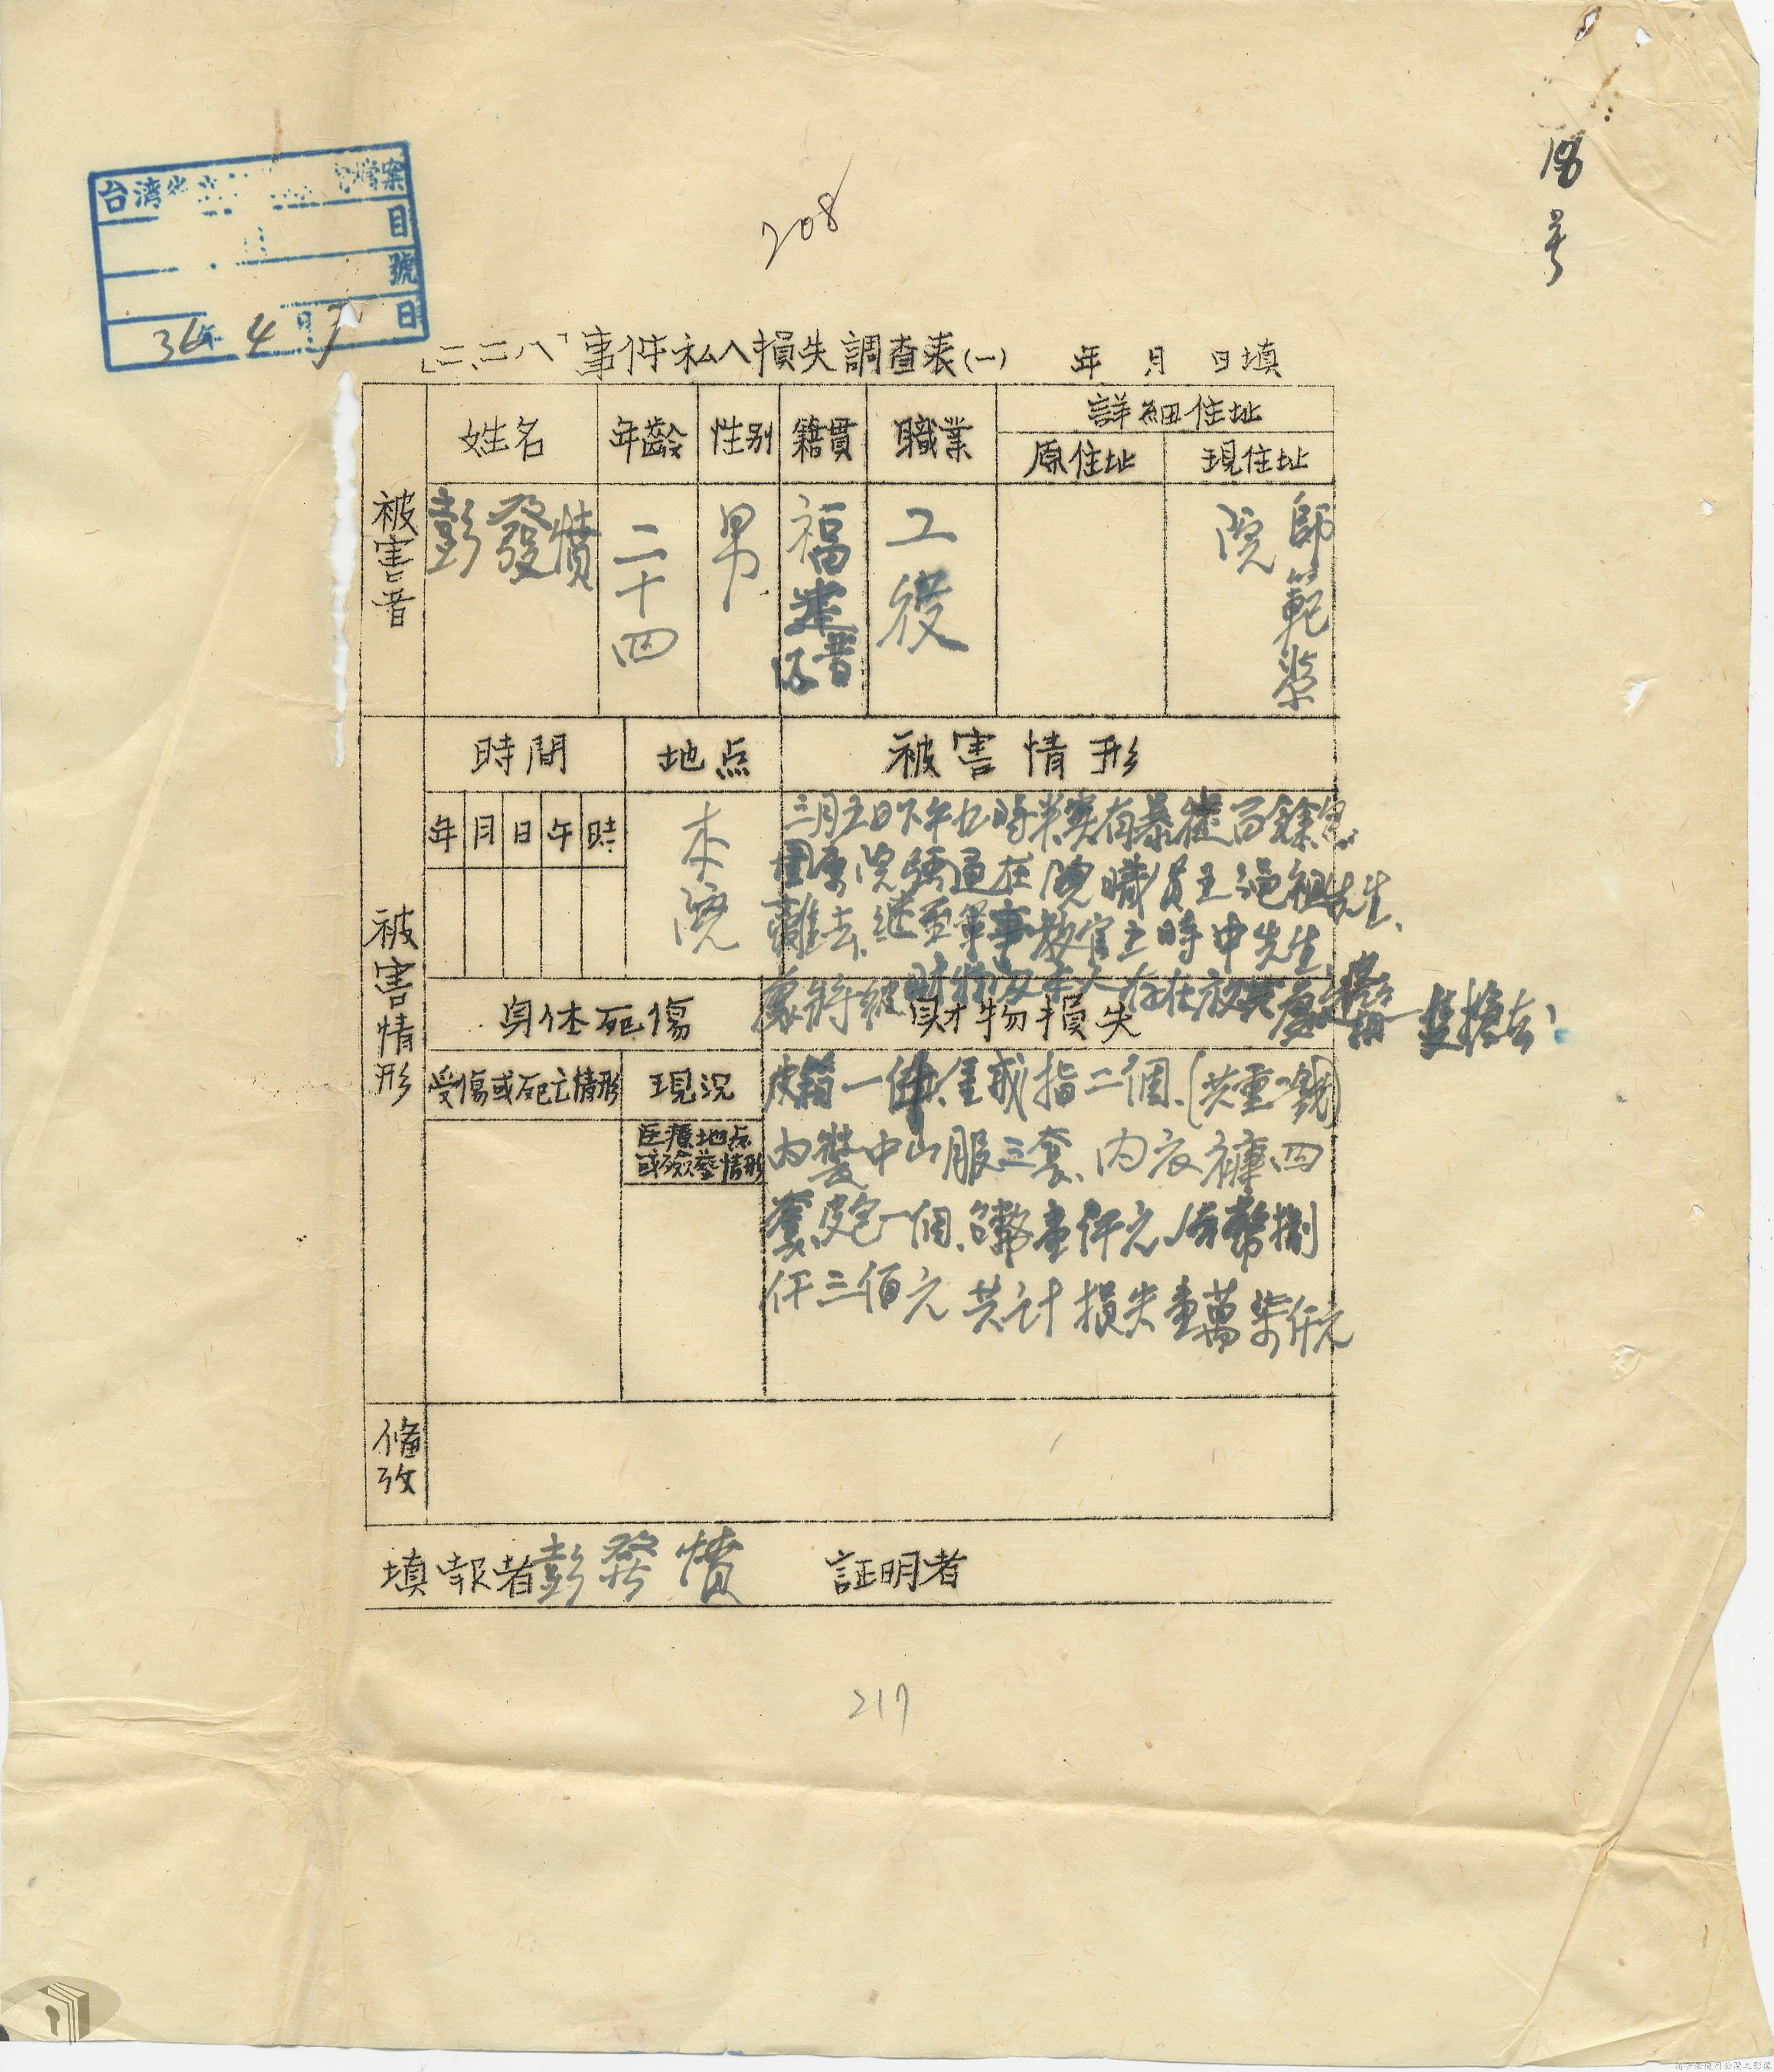 18
号
208
台湾 檔案
目
號
36年4月 日
「二、二八」事件私人損失調查表(一) 年 月 日填
被害者
姓名 年齡 性別 籍貫 職業 詳細住址
原住址 現住址
彭發憤 二十四 男 福建晉 工役 師範學院
被害情形
時間 地点 被害情形
年 月 日 午 時
本院
三月五日下午九時半實有暴徒百餘
院強迫在院職員王 祖先生
離去、继至軍事教官王時中先生
將 財物及本人存在 搶去
身体死傷 財物損失
受傷或死亡情形 現況
医療地点
或殮葬情形
皮箱一件、金戒指二個、(共重 錢)
内裝中山服三套、内衣褲四
套、皮包一個、台幣壹仟元、 幣捌
仟三佰元 共計損失壹萬柒仟元
備攷
填報者彭發憤 証明者
217
請合法使用公開之影像